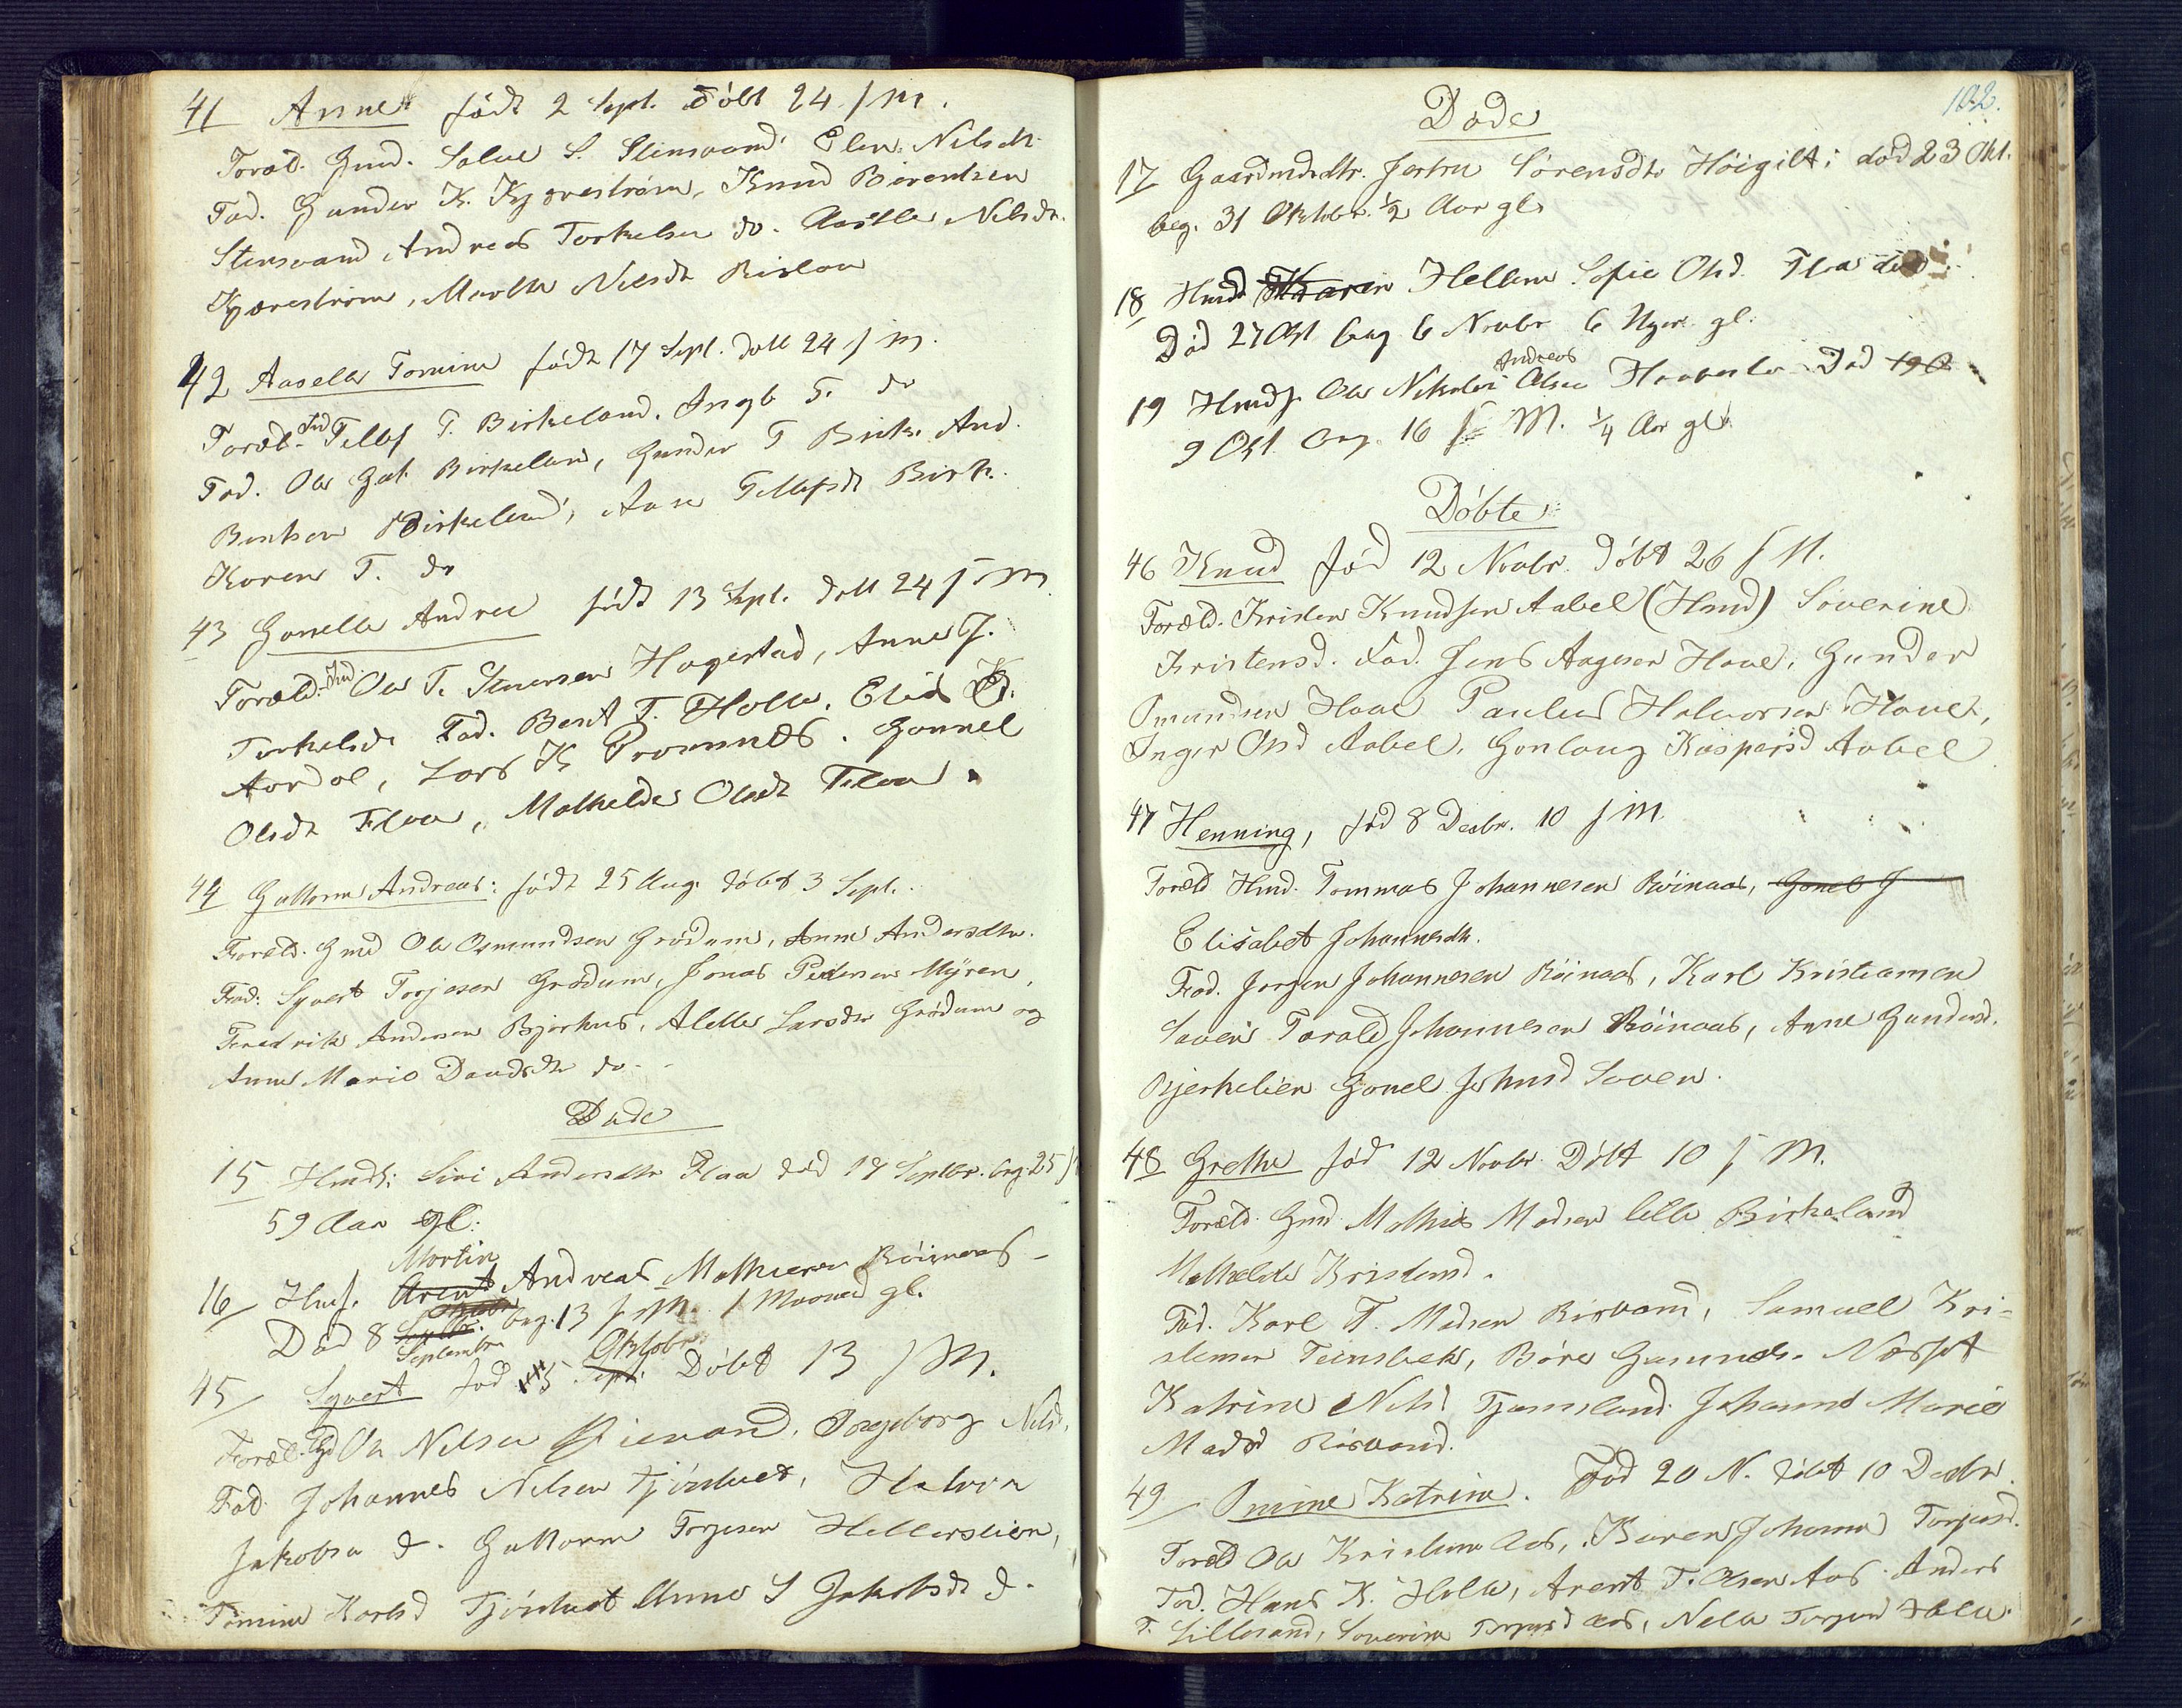 41 Anne født 2 Sept. Døbt 24 s M.
Foræld. Gmd. Salve S. Stensvand. Elen Nilsdt.
Fad. Gunder K. Kjærestrøm, Knud Berentsen
Stensvand, Andreas Torkelsen do. Aaslle Nelsdt.
Kjærestrøm, Marthe Nelsdt Risløa
42 Aaselle Tomine født 17 Sept. døbt 24 s M.
Foræld. Ind Tellef T. Birkeland. Ingb T. do
Fad. Ole Gut. Birkeland, Gunder T Birk. And.
Bentsen Birkeland, Aase Tellefsdt Birk.
Karen T. do
43 Gonelle Andrea født 13 Sept. døbt 24 s M
Foræld. Ind Ole T. Stuensen Hagestad, Anne J.
Torkelsdt. Fad. Bent T. Holle, Elias K.
Aardal, Lars K Promnæs. Gonnel
Olsdt Flaa, Mathilde Olsdt Flaa.
44 Guttorm Andreas: født 25 Aug. døbt 3 Sept.
Foræld. Gmd Ole Osmundsen Grødum, Anne Andersdtr.
Fad: Syvert Torjesen Grødum, Jonas Pedersen Myren,
Fredrik Andersen Bjørkus, Alette Larsdtr Grødum og
Anne Marie Davidsdtr do.
Døde
15 Hmds: Siri Andersdtr Flaa død 17 Septbr. beg 25 s
59 Aar gl:
Martin
16 Hmf. Arent Andreas Mathiesen Røinaas
Oktober
Død 8 Septbr. beg. 13 s M. 1 Maaned gl.
September Oktober
45 Syvert fød 15 Sept. Døbt 13 s M.
Foræld. Gd Ole Nelsen Rievand, Ingeborg Nelsd.
Fad. Johannes Nelsen Fjørdvet, Halvor
Jakobsen d. Guttorm Torjesen Hellerslien,
Tomine Karlsd Fjørdvet Anne S Jakobsdt d.
102.
Døde
17 Gaardmdsdtr. Jertru Sørensdtr Høigilt: død 23 Okt.
beg. 31 Oktober. ½ Aar gl.
18 Hmd Karen Hellene Sofie Olsd. Flaa død
Død 27 Okt beg 6 Novbr 6 Uger gl.
Andreas
19 Hmds. Ole Nikolai Olsen Haaverstø Død 19 O
9 Okt. beg. 16 s M. ¼ Aar gl
Døbte:
46 Knud fød 12 Novbr. døbt 26 s M.
Foræld. Kristen Knudsen Aabel (Hmd) Severine
Kristensd. Fad. Jens Aagesen Haae, Gunder
Omundsen Haae Paulus Halvorsen Haaet,
Inger Olsd Aabel, Gonlaug Kaspersd Aabel
47 Henning, fød 8 Decbr. 10 s M.
Foræld Hmd. Tommas Johannesen Røinaas, Gonel J
Elisabet Johannesdt.
Fad. Jørgen Johannesen Røinaas, Karl Kristiansen
Saven Tarald Johannesen Røinaas, Anne Gundersd.
Bjerkelien Gonel Johnsd Saven.
48 Grethe fød 12 Novbr Døbt 10 s M.
Foræld. Gmd Mathias Madsen lille Birkeland
Mathilde Kristensd.
Fad. Karl T. Madsen Risvand, Samuel Kri=
stensen Teinsbek, Børe Gumunds. Næsset
Katrine Nelsd Tjomsland. Johanne Marie
Madsd Risvand.
49 Omine Katrine. Fød 20 N. døbt 10 Decbr.
Foræld Ole Kristensen Aas, Karen Johanne Torjusd.
Fad. Hans K. Holle, Arent T. Olsen Aas. Anders
T. Lillesand, Severine Torjusd Aas, Nelle Torjusd Holle.